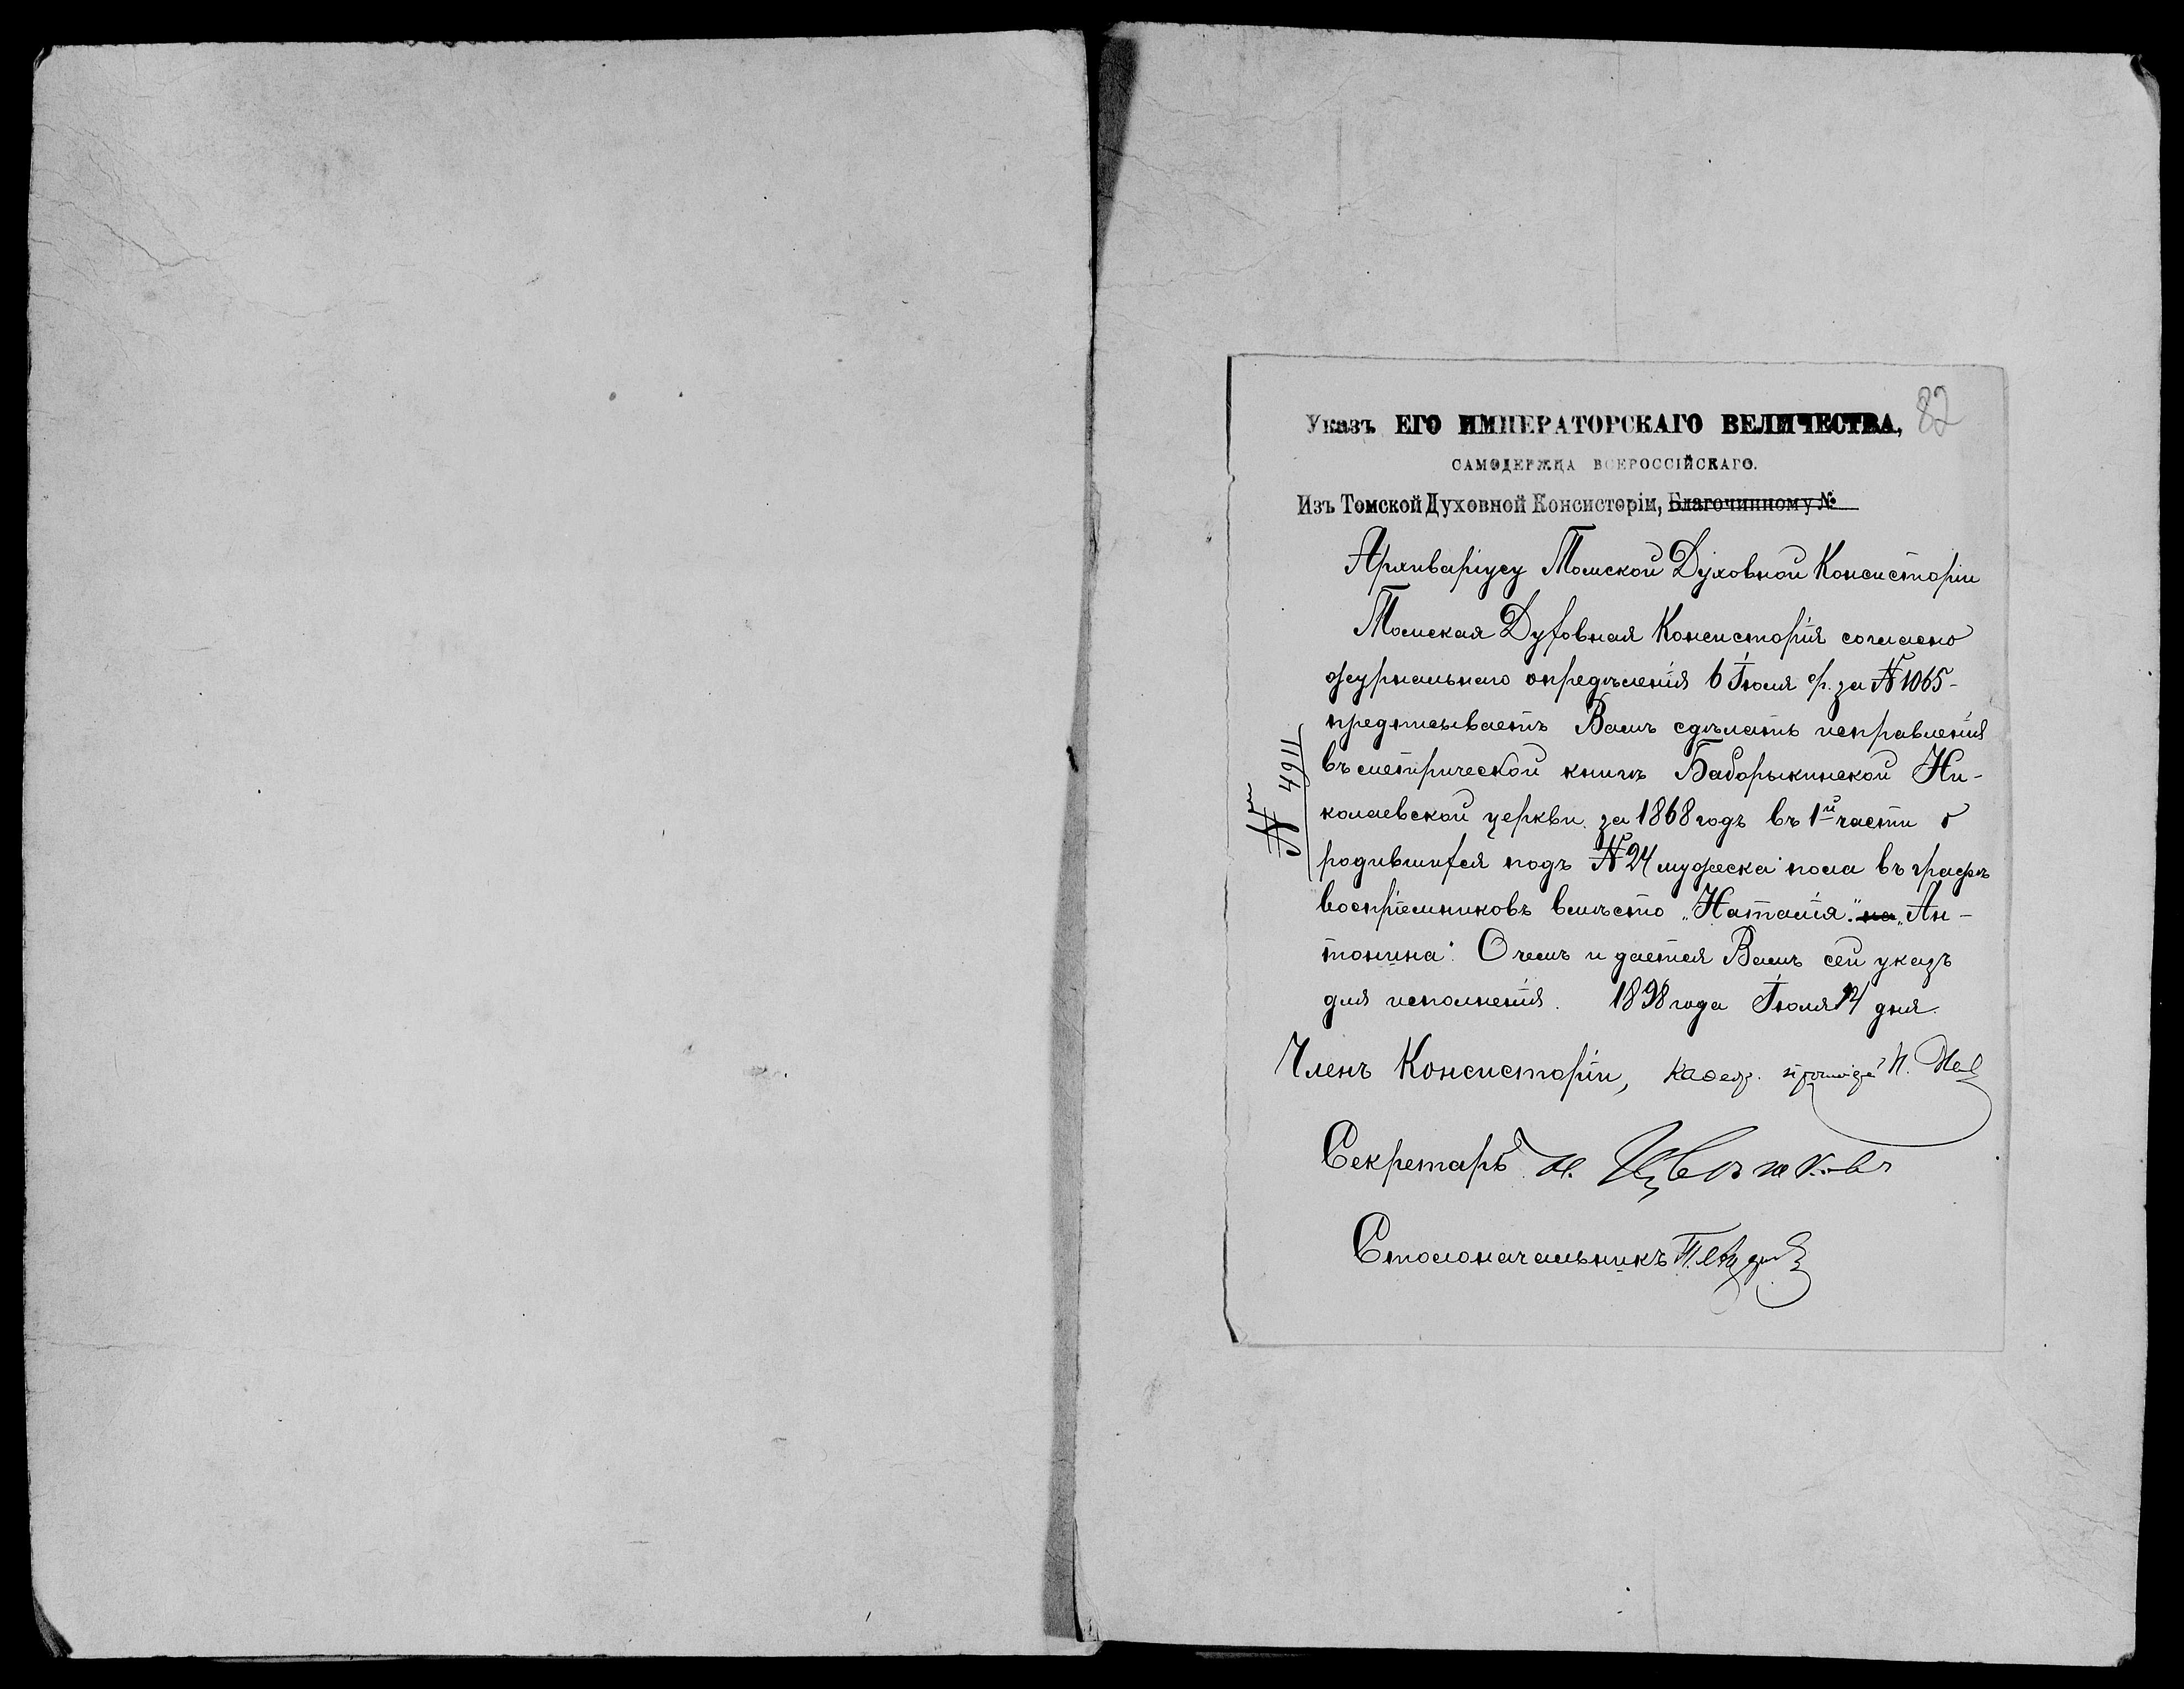 82
Указъ ЕГО ИМПЕРАТОРСКАГО ВЕЛИЧЕСТВА,
САМОДЕРЖЦА ВСЕРОССІЙСКАГО.
Изъ Томской Духовной Консисторіи, Благочинному №
Архиваріусу Томской Духовной Консисторіи
Томская Духовная Консисторія согласно
журнальнаго опредѣленія 6 Іюля с/г. за № 1065-
предписываетъ Вамъ сдѣлать исправленія
въ метрической книгѣ Бабарыкинской Ни-
колаевской церкви за 1868 годъ въ 1й части о
родившихся подъ № 24 мужеска пола въ графѣ
воспріемниковъ вмѣсто „Наталія" на „Ан-
тонина". О чемъ и дается Вамъ сей указъ
для исполненія. 1898 года Іюля 14 дня.
№ 4911
Членъ Консисторіи, кафедр. И.
Секретарь И. Цвѣтковъ
Столоначальникъ П.